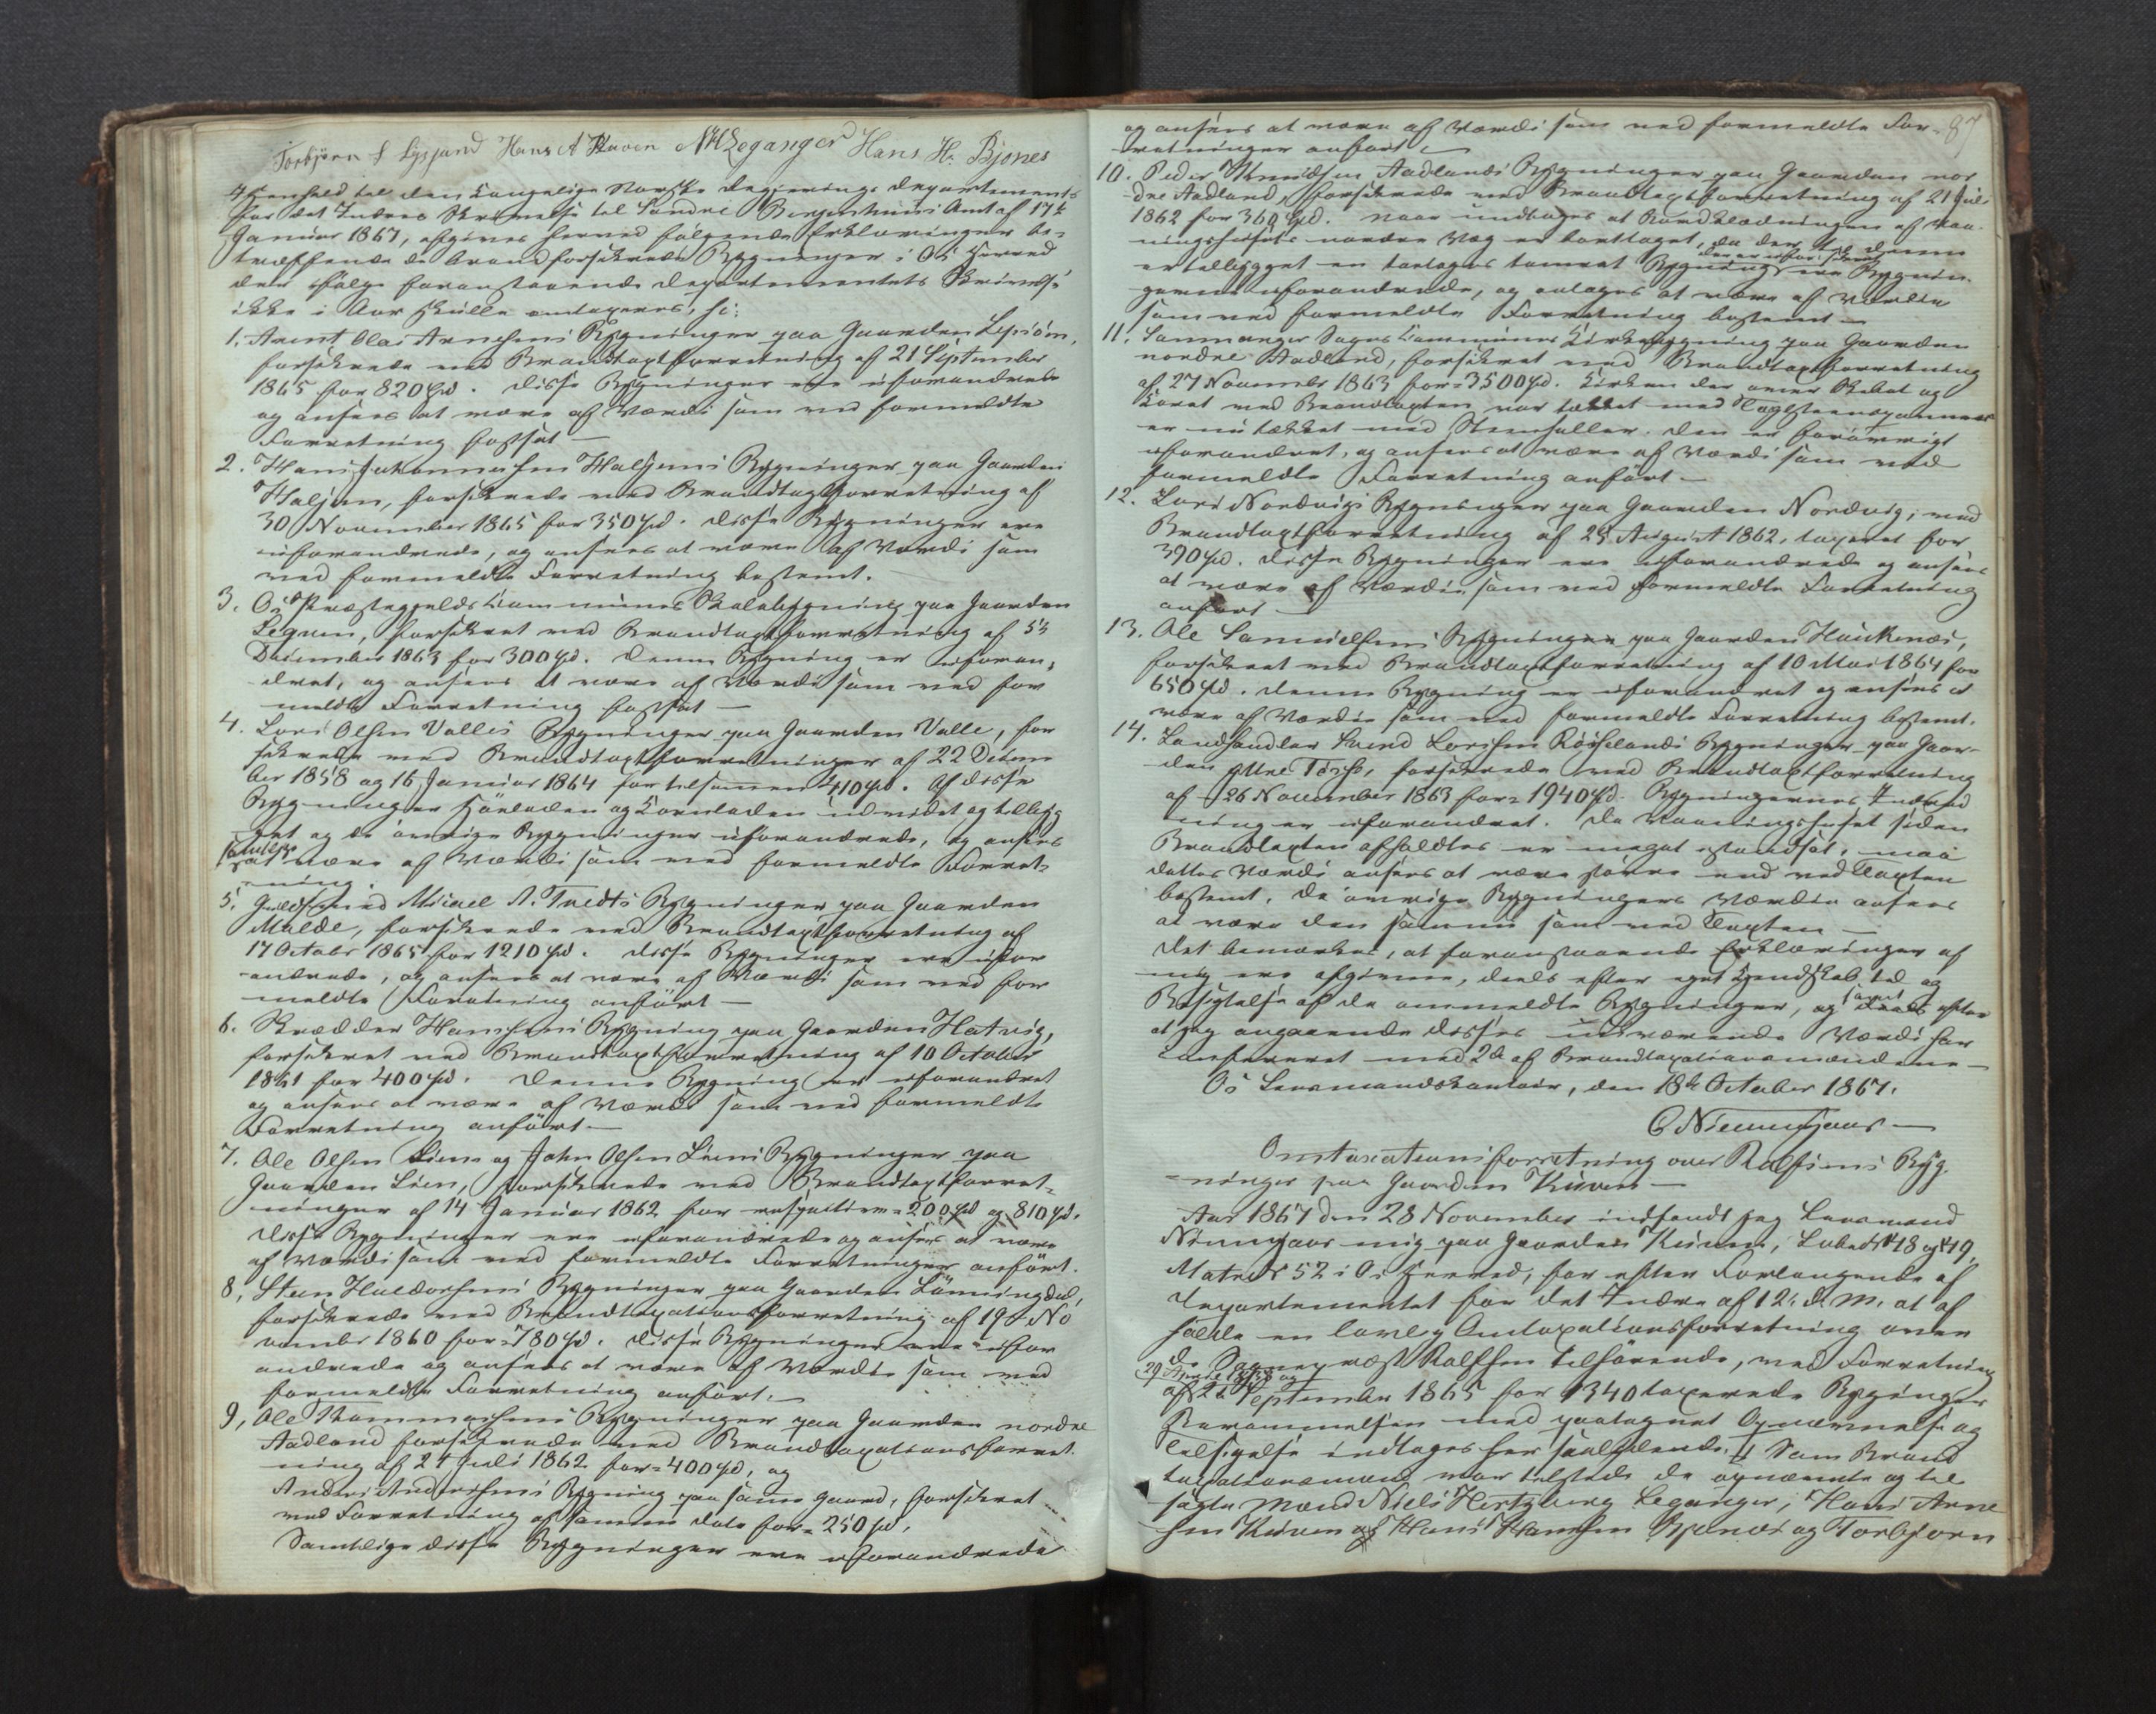 Torbjörn L Lysjand Hans A Kuven N H Leganger Hans H. Bjones
I Henhold til den Kongelige Norske Regjerings Departement
for det Indres Skrivelse til Söndre Bergenhuus Amt af 17de
Januar 1867, afgives herved følgende Erklæringer be-
træffende de brandforsikrede Bygninger i Os Herred
der ifølge foranstaaende Departementets Skrivelse
ikke i Aar skulle omtaxeres, s:
1. Arent Olai Arnesens Bygninger paa Gaarden Lepsöen,
forsikrede ved Brandtaxtforretning af 21 September
1865 for 820 Spd. Disse Bygninger ere uforandrede
og ansees at være af Værdi som ved formeldte
Forretning fastsat —
2. Hans Johannessens Haljems Bygninger paa Gaarden
Haljem, forsikrede ved Brandtaxtforretning af
30 November 1865 for 350 Spd. Disse Bygninger ere
uforandrede, og ansees at være af Værdi som
ved formeldte Forretning bestemt.
3. Os Præstegjelds Communes Skolebygning paa Gaarden
Legeim, forsikret ved Brandtaxtforretning af 5te
December 1863 for 300 Spd. Denne Bygning er uforan-
dret, og ansees at være af Værdi som ved for
meldte Forretning fastsat —
4. Lars Olsen Valles Bygninger paa Gaarden Valle, for
sikrede ved Brandtaxtforretninger af 22 Decem
ber 1858 og 16 Januar 1864 for tilsammen 410 Spd. Af disse
Bygninger Höeladen og Kornladen udvidet og tilbyg
get og de øvrige Bygninger uforandrede, og ansees
samtlige at være af Værdi som ved formeldte Forret-
ning.
5. Guldsmed Micael A. Tvedts Bygninger paa Gaarden
Malde, forsikrede ved Brandtaxtforretning af
17 October 1865 for 1210 Spd. Disse Bygninger ere ufor
andrede, og ansees at være af Værdi som ved for
meldte Forretning anført —
6. Skrædder Hansens Bygning paa Gaarden Hatvig,
forsikret ved Brandtaxtforretning af 10 October
1861 for 400 Spd. Denne Bygning er uforandret
og ansees at være af Værdi som ved formeldte
Forretning anført. —
7. Ole Olsen Liens og John Olsen Liens Bygninger paa
Gaarden Lien, forsikrede ved Brandtaxtforret-
ninger af 14 Januar 1862 for respective 200 Spd og 810 Spd.
Disse Bygninger ere uforandrede og ansees at være
af Værdi som ved formeldte Forretninger anført.
8. Steen Haldorsens Bygninger paa Gaarden Lönningdal,
forsikrede ved Brandtaxationsforretning af 19 No
vember 1860 for 780 Spd. Disse Bygninger ere ufor
andrede og ansees at være af Værdi som ved
formeldte Forretning anført. —
9. Ole Thommassens Bygninger paa Gaarden nordre
Aadland forsikrede ved Brandtaxationsforret
ning af 24 Juli 1862 for 400 Spd, og
Anders Andersens Bygning paa samme Gaard, forsikret
ved Forretning af samme Dato for 250 Spd.
Samtlige disse Bygninger ere uforandrede
og ansees at være af Værdi som ved formeldte For- 87
retninger anført. —
10. Peder Knudsen Aadlands Bygninger paa Gaarden nor
dre Aadland, forsikrede ved Brandtaxtforretning af 21 Juli
1862 for 360 Spd. Naar undtages at Bordklædningen af Vaa-
ningshusets nordre Væg er borttaget, da der til denne
er tilbygget en toetages tømret Bygning, der er uforsikret, ere Bygnin
gerne uforandrede, og antages at være af Værdie
som ved formeldte Forretning bestemt —
11. Samnanger Sogns Communes Kirkebygning paa Gaarden
nordre Aadland, forsikret ved Brandtaxtforretning
af 27 November 1863 for 3500 Spd. Kirken der over Skibet og
Koret ved Brandtaxten var tækket med Taglsteenspanner
er nu tækket med Steenheller. Den er forøvrigt
uforandret, og ansees at være af Værdi som ved
formeldte Forretning anført —
12. Lars Nordvigs Bygninger paa Gaarden Nordvig, ved
Brandtaxtforretning af 25 August 1862, taxeret for
390 Spd. Disse Bygninger ere uforandrede og ansees
at være af Værdie som ved formeldte Forretning
anført —
13. Ole Samuelsens Bygninger paa Gaarden Haukenæs,
forsikret ved Brandtaxtforretning af 10 Mai 1864 for
650 Spd. Denne Bygning er uforandret og ansees at
være af Værdie som ved formeldte Forretning bestemt.
14. Landhandler Larsen Röiselands Bygninger paa Gaar-
den ytre Tösse, forsikrede ved Brandtaxtforretning
af 26 November 1863 for 1940 Spd. Bygningernes Indred
ning er uforandret. Da Vaaningshuset siden
Brandtaxten afholdtes er meget istandsat, maa
dettes Værdi ansees at være større end ved Taxten
bestemt. De øvrige Bygningers Værdie ansees
at være den samme som ved Taxten —
Det bemærkes, at foranstaaende Erklæringer af
mig ere afgivne, deels efter eget Kjendskab til og
Besigtelse af de ommeldte Bygninger, og samt deels efter
at jeg angaaende disses nuværende Værdi har
confereret med 2de af Brandtaxationsmændene —
Os Lensmandskontoir, den 18de October 1867.
C Nummedal —
Omtaxationsforretning over Rolfsens Byg-
ninger paa Gaarden Kuven —
Aar 1867 den 28 November indfandt jeg Lensmand
mig paa Gaarden Kuven, Löbe No 48 og 49,
Matr No 52 i Os Herred, for efter Forlangende af
Departementet for det Indre af 12. d. M. at af
holde en lovlig Omtaxationsforretning over
de Sognepræst Rolfsen tilhørende, ved Forretning
29 1858 og
af 26 September 1865 for 1340 taxerede Byginger
Berammelsen med paategnet Opnævnelse og
Tilsigelse indtages her saalydende: // Som Brand
taxationsmænd vare tilstede de opnævnte og til
sagte Mænd Niels Hertzberg Leganger, Hans Arne
sen Kuven og Hans Hansen Bjånes og Torbjørn